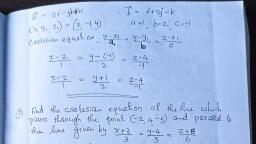 a⃗ = 2i - j + 4k , b⃗ = i + 2j - k
(x₁ y₁ z₁) = (2 -1, 4) a=1, b=2 c=-1
cartesian equation x-x₁/a = y-y₁/b = z-z₁/c
x-2/1 = y-(-1)/2 = z-4/-1
x-2/1 = y+1/2 = z-4/-1
Find the cartesian equation of the line which
passes through the point (-2 4 -5) and parallel to
the line given by x+3/3 = y-4/5 = z+8/6